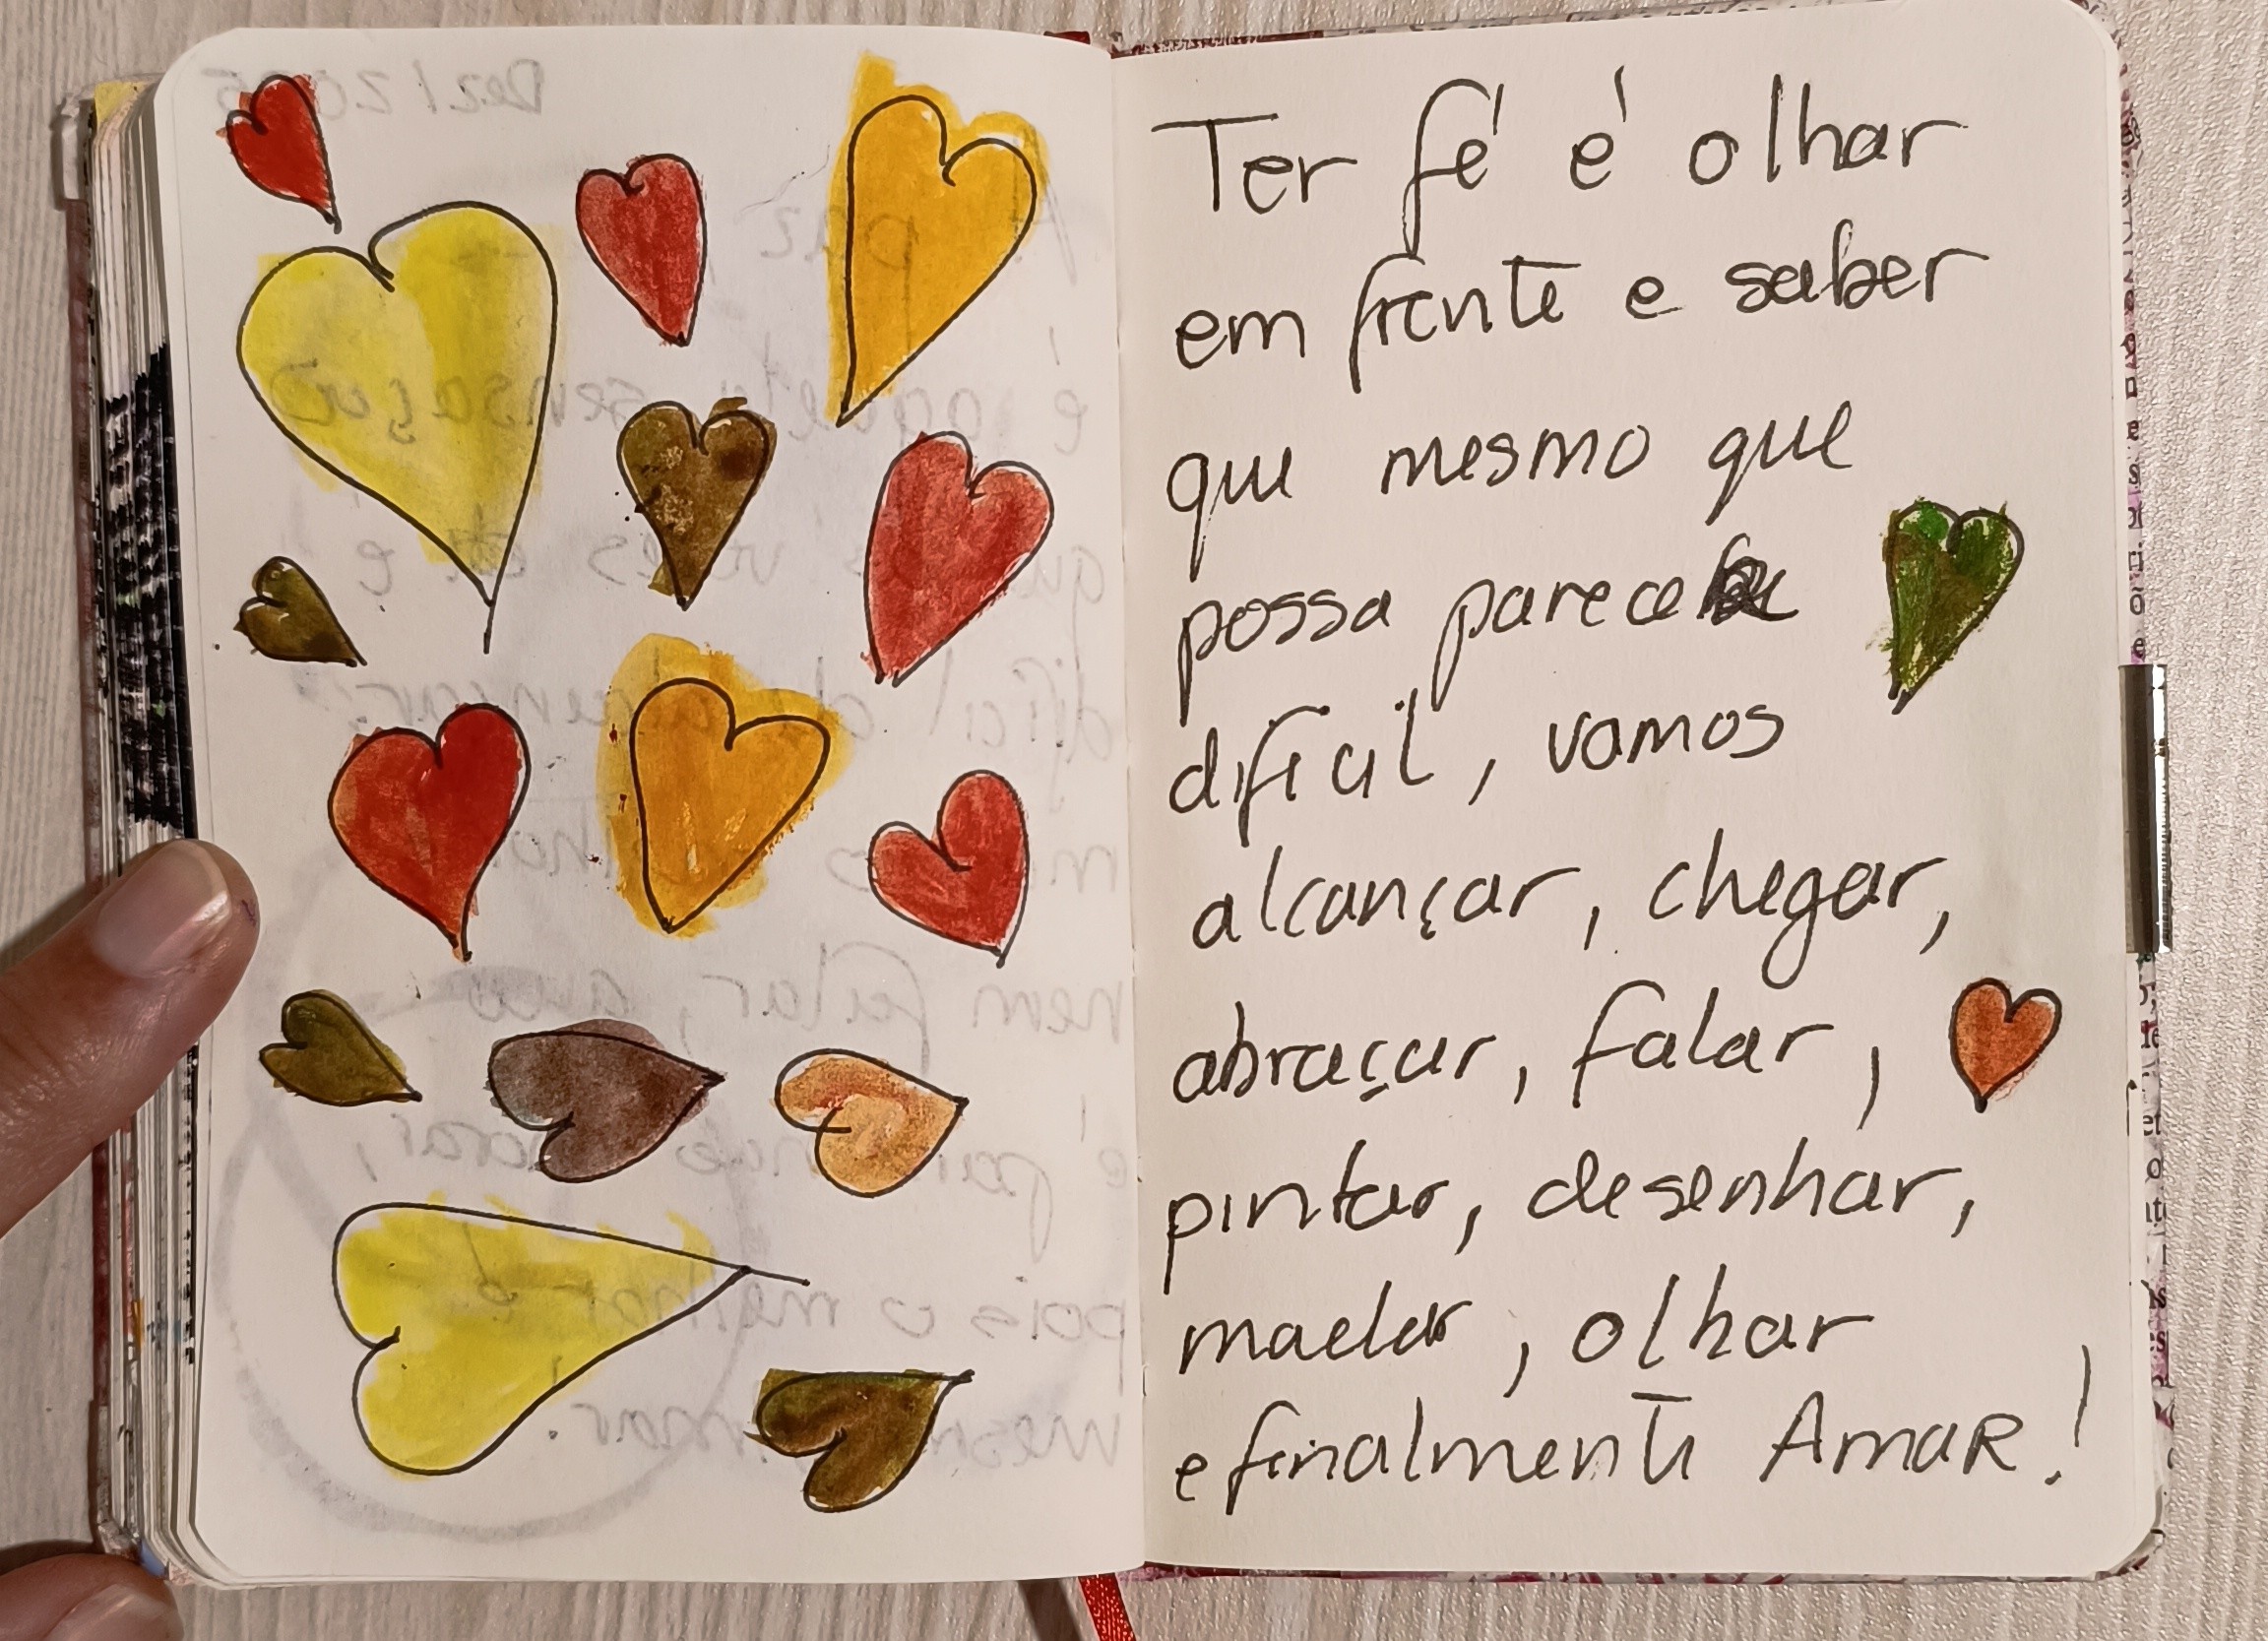 Ter fé é olhar
em frente e saber
que mesmo que
possa parece
dificil, vamos
alcançar, chegar,
abraçar, falar,
pintar, desenhar,
olhar
e finalmente AmAR!